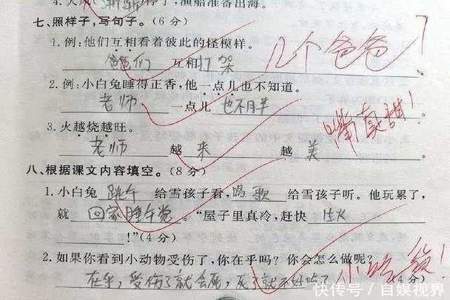 七、照样子，写句子。(6分)
1.例:他们互相看着彼此的怪模样。
爸爸们 互相打架 几个爸爸?
2.例:小白兔睡得正香，他一点儿也不知道。
老师 一点儿 也不胖
3.火越烧越旺。 嘴真甜!
老师 越 来 越 美 。
八、根据课文内容填空。(8分)
1.小白兔 跳伞 给雪孩子看, 唱歌 给雪孩子听。他玩累了,
就 回家睡午觉 。"屋子里真冷，赶快 生火
!"(4分)
2.如果你看到小动物受伤了，你在乎吗？你会怎么做呢？
在乎，受伤了就会死，死了就不好吃了
快传号/自媒视界